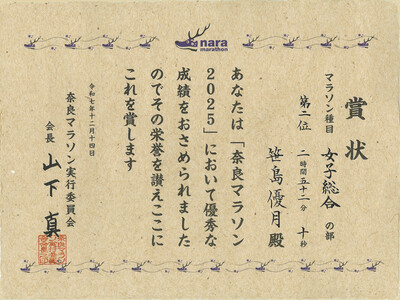 nara
marathon
賞状
マラソン種目 女子総合 の部
第二位 二時間五十二分 十秒
笹島優月殿
あなたは「奈良マラソン
2025」において優秀な
成績をおさめられました
のでその栄誉を讃えここに
これを賞します
令和七年十二月十四日
奈良マラソン実行委員会
会長 山下 真